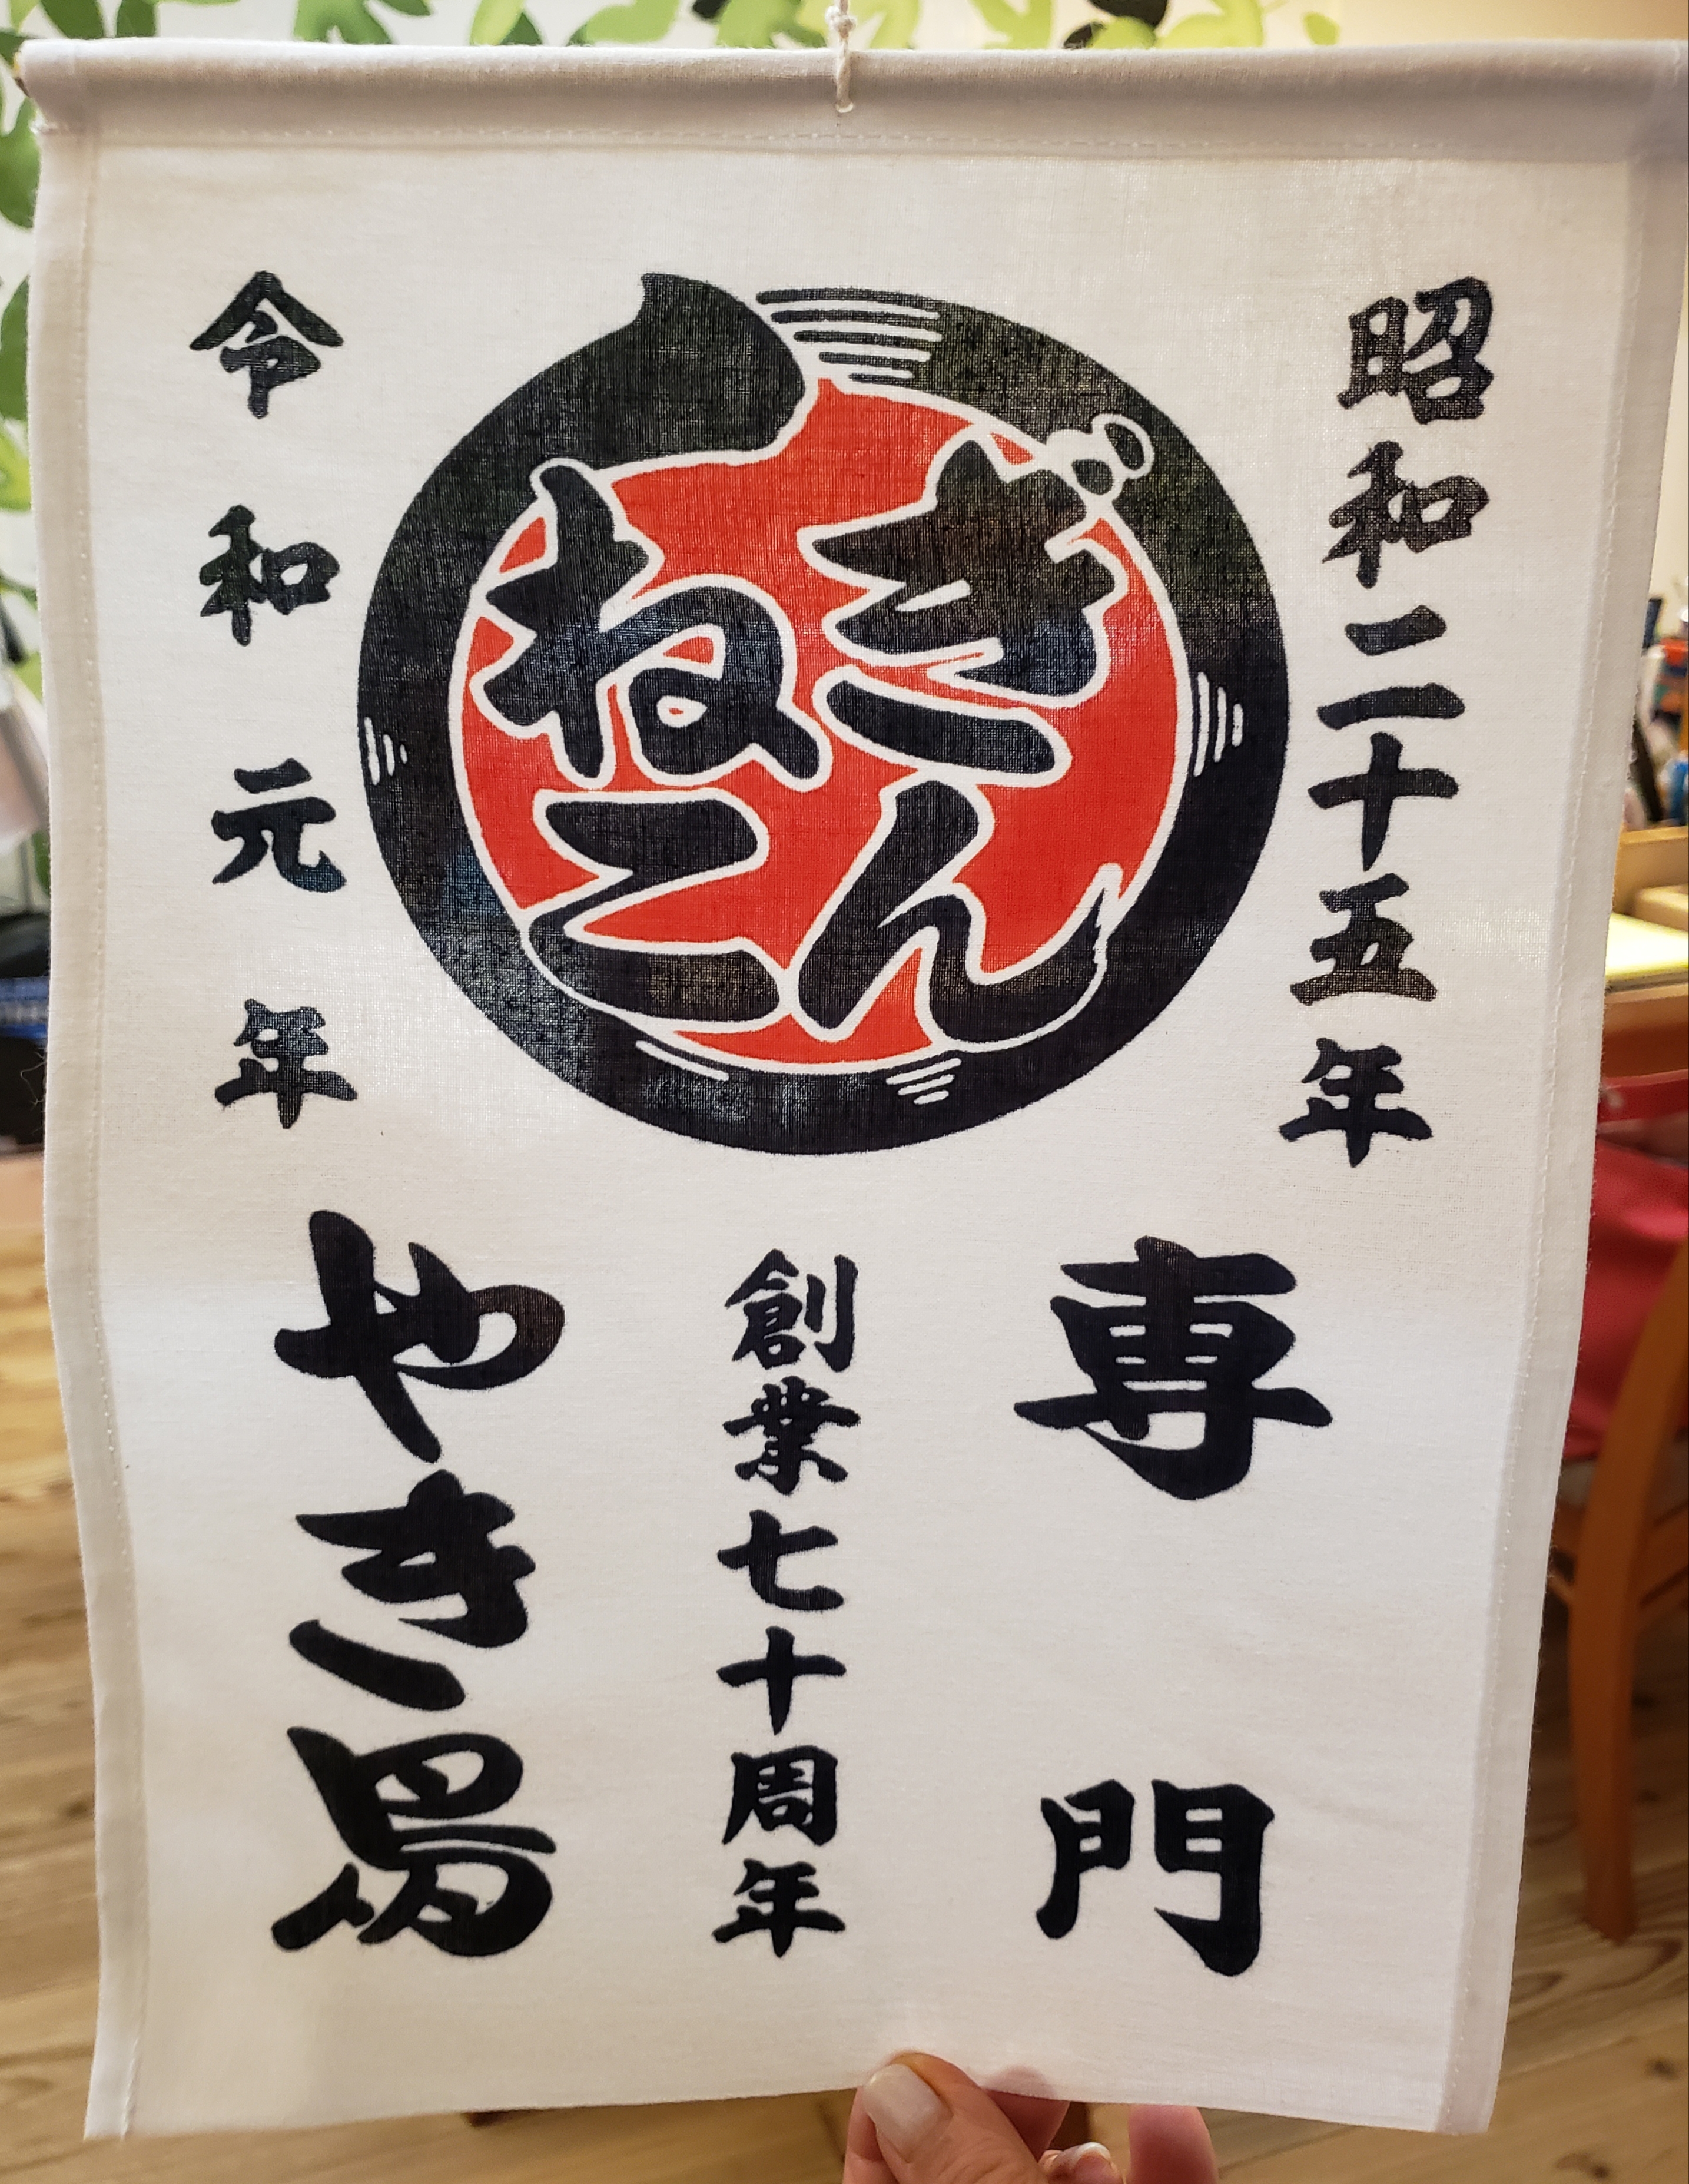 昭和二十五年
きん
ねこ
令和元年
専門
創業七十周年
やき鳥